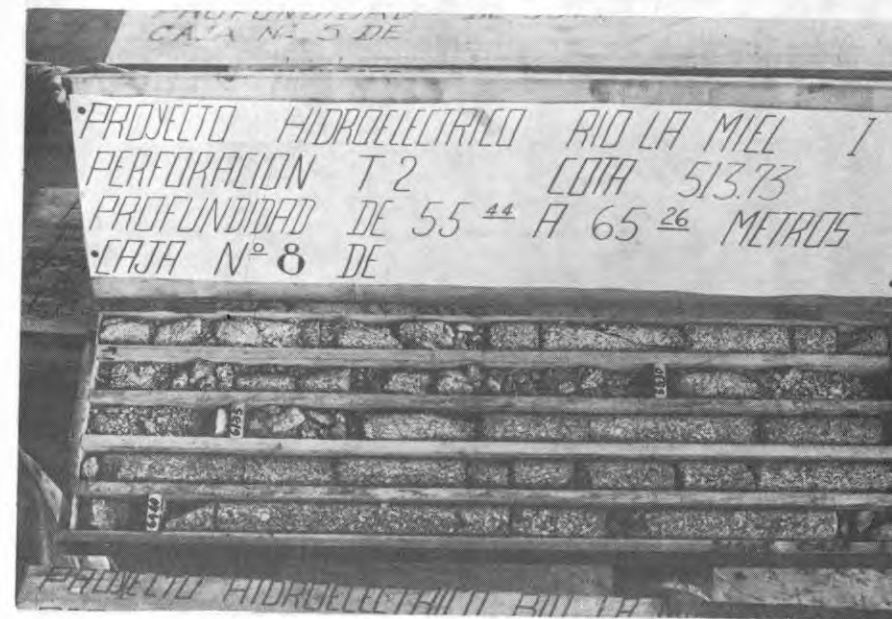 PROFUNDIDAD DE
CAJA Nº 5 DE
PROYECTO HIDROELECTRICO RIO LA MIEL I
PERFORACION T2 COTA 513.73
PROFUNDIDAD DE 55 44 A 65 26 METROS
CAJA Nº 8 DE
PROYECTO HIDROELECTRICO RIO LA